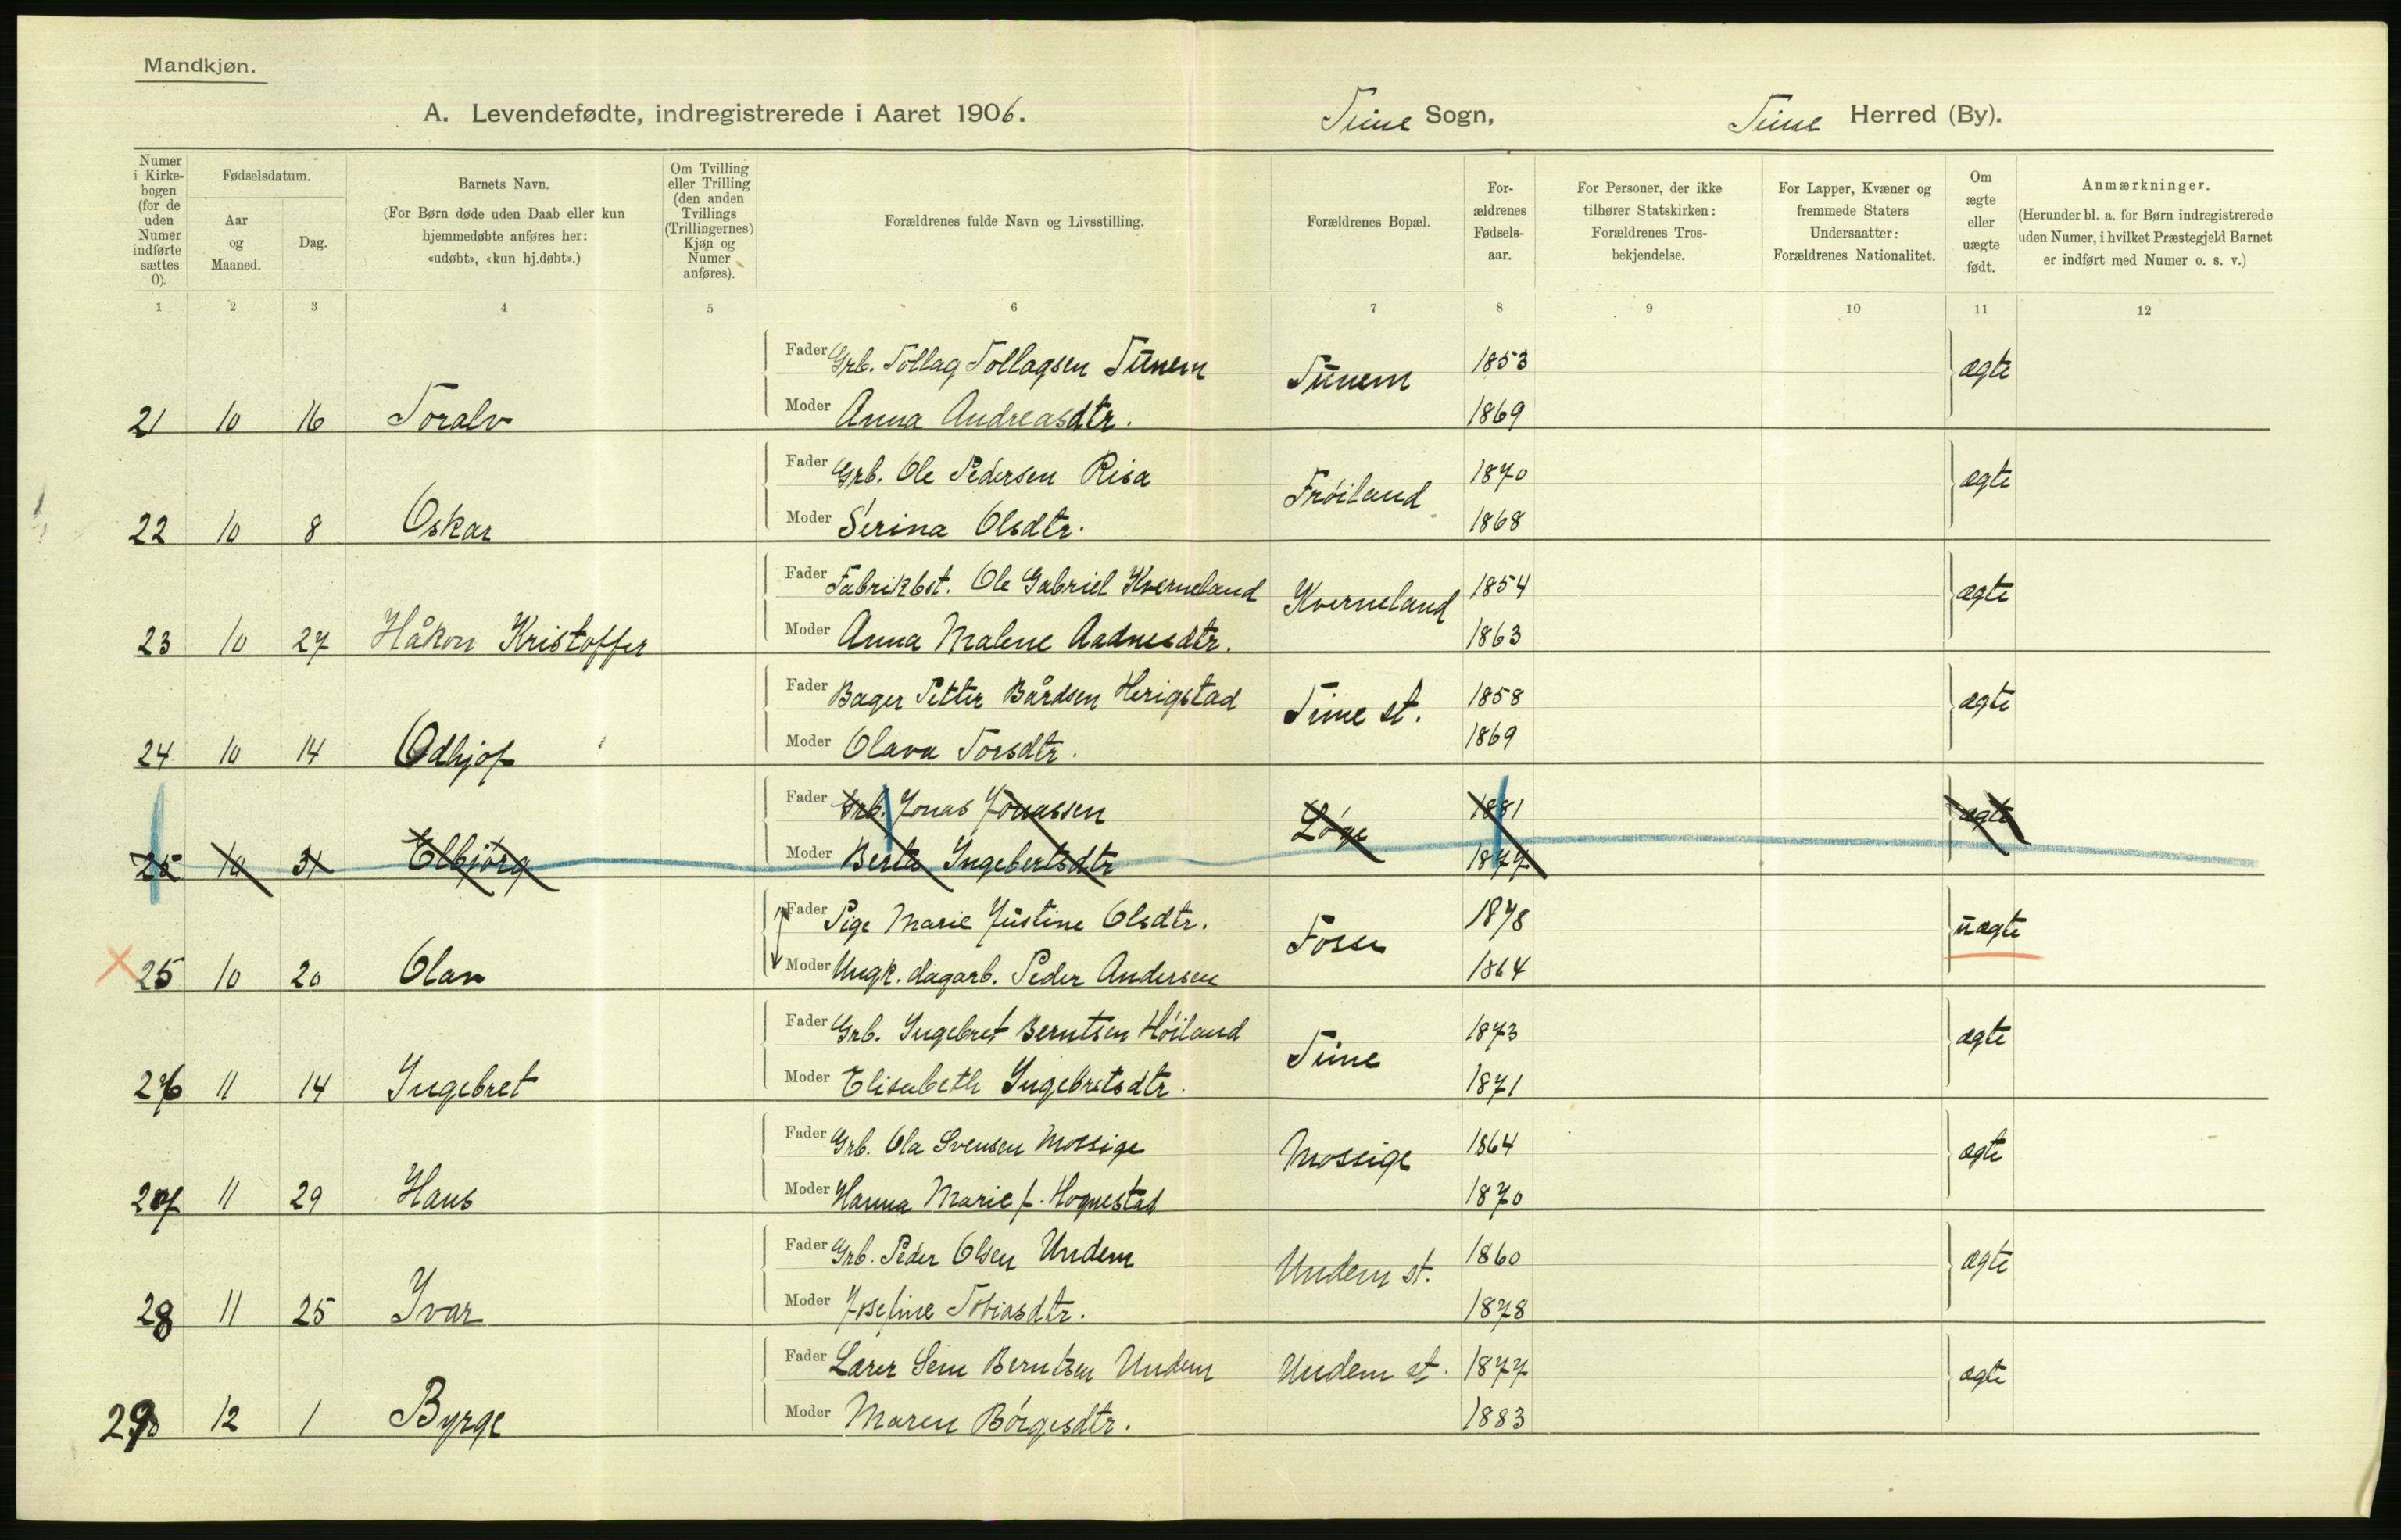 Mandkjøn.
A. Levendefødte, indregistrerede i Aaret 1906. Time Sogn, Time Herred (By).
Numer i Kirke-bogen (for de uden Numer indførte sættes 0).
Fødselsdatum.
Aar og Maaned.
Dag.
Barnets Navn.
(For Børn døde uden Daab eller kun hjemmedøbte anføres her: «udøbt», «kun hj.døbt».)
Om Tvilling eller Trilling (den anden Tvillings (Trillingernes) Kjøn og Numer anføres).
Forældrenes fulde Navn og Livsstilling.
Forældrenes Bopæl.
For-ældrenes Fødsels-aar.
For Personer, der ikke tilhører Statskirken: Forældrenes Tros-bekjendelse.
For Lapper, Kvæner og fremmede Staters Undersaatter: Forældrenes Nationalitet.
Om ægte eller uægte født.
Anmærkninger.
(Herunder bl. a. for Børn indregistrerede uden Numer, i hvilket Præstegjeld Barnet er indført med Numer o. s. v.)
1 2 3 4 5 6 7 8 9 10 11 12
Fader Grb. Tollag Tollagsen Tunem Tunem 1853 ægte
21 10 16 Toralv Moder Anna Andreasdtr. 1869
Fader Grb. Ole Pedersen Risa Frøiland 1870 ægte
22 10 8 Oskar Moder Serina Olsdtr. 1868
Fader Fabrikbst. Ole Gabriel Kverneland Kverneland 1854 ægte
23 10 27 Håkon Kristoffer Moder Anna Malene Aadnesdtr. 1863
Fader Bager Petter Bårdsen Herigstad Time st. 1858 ægte
24 10 14 Odhjof Moder Olava Torsdtr. 1869
Fader Grb. Jonas Jonassen Løge 1881 ægte
25 10 31 Elbjørg Moder Berta Ingebertsdtr 1877
Fader Pige Marie Justine Olsdtr. Fosse 1878 uægte
25 10 20 Olav Moder Ungk. dagarb. Peder Andersen 1864
Fader Grb. Ingebret Berntsen Høiland Time 1873 ægte
26 11 14 Ingebret Moder Elisabeth Ingebretsdtr. 1871
Fader Grb. Ola Svensen Mossige Mossige 1864 ægte
27 11 29 Hans Moder Hanna Marie f. Hognestad 1870
Fader Grb. Peder Olsen Undem Undem st. 1860 ægte
28 11 25 Ivar Moder Josefine Tobiasdtr. 1878
Fader Lærer Sem Berntsen Undem Undem st. 1877 ægte
29 12 1 Byrge Moder Maren Børgesdtr. 1883